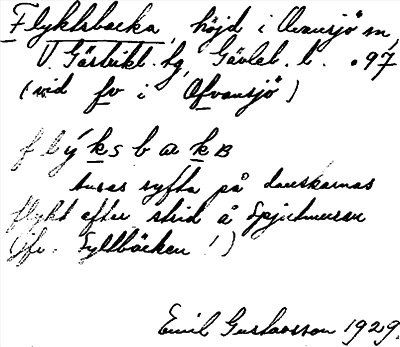 Flyktsbacka, höjd i Ovansjö sn,
V. Gästrikl. tg, Gävleb. l. . 97
(vid fv i Ofvansjö)
flýksbakB
turas syfta på danskarnas
flykt efter strid å Spjutmuren
(jfr. Syltbäcken!)
Emil Gustavsson 1929.